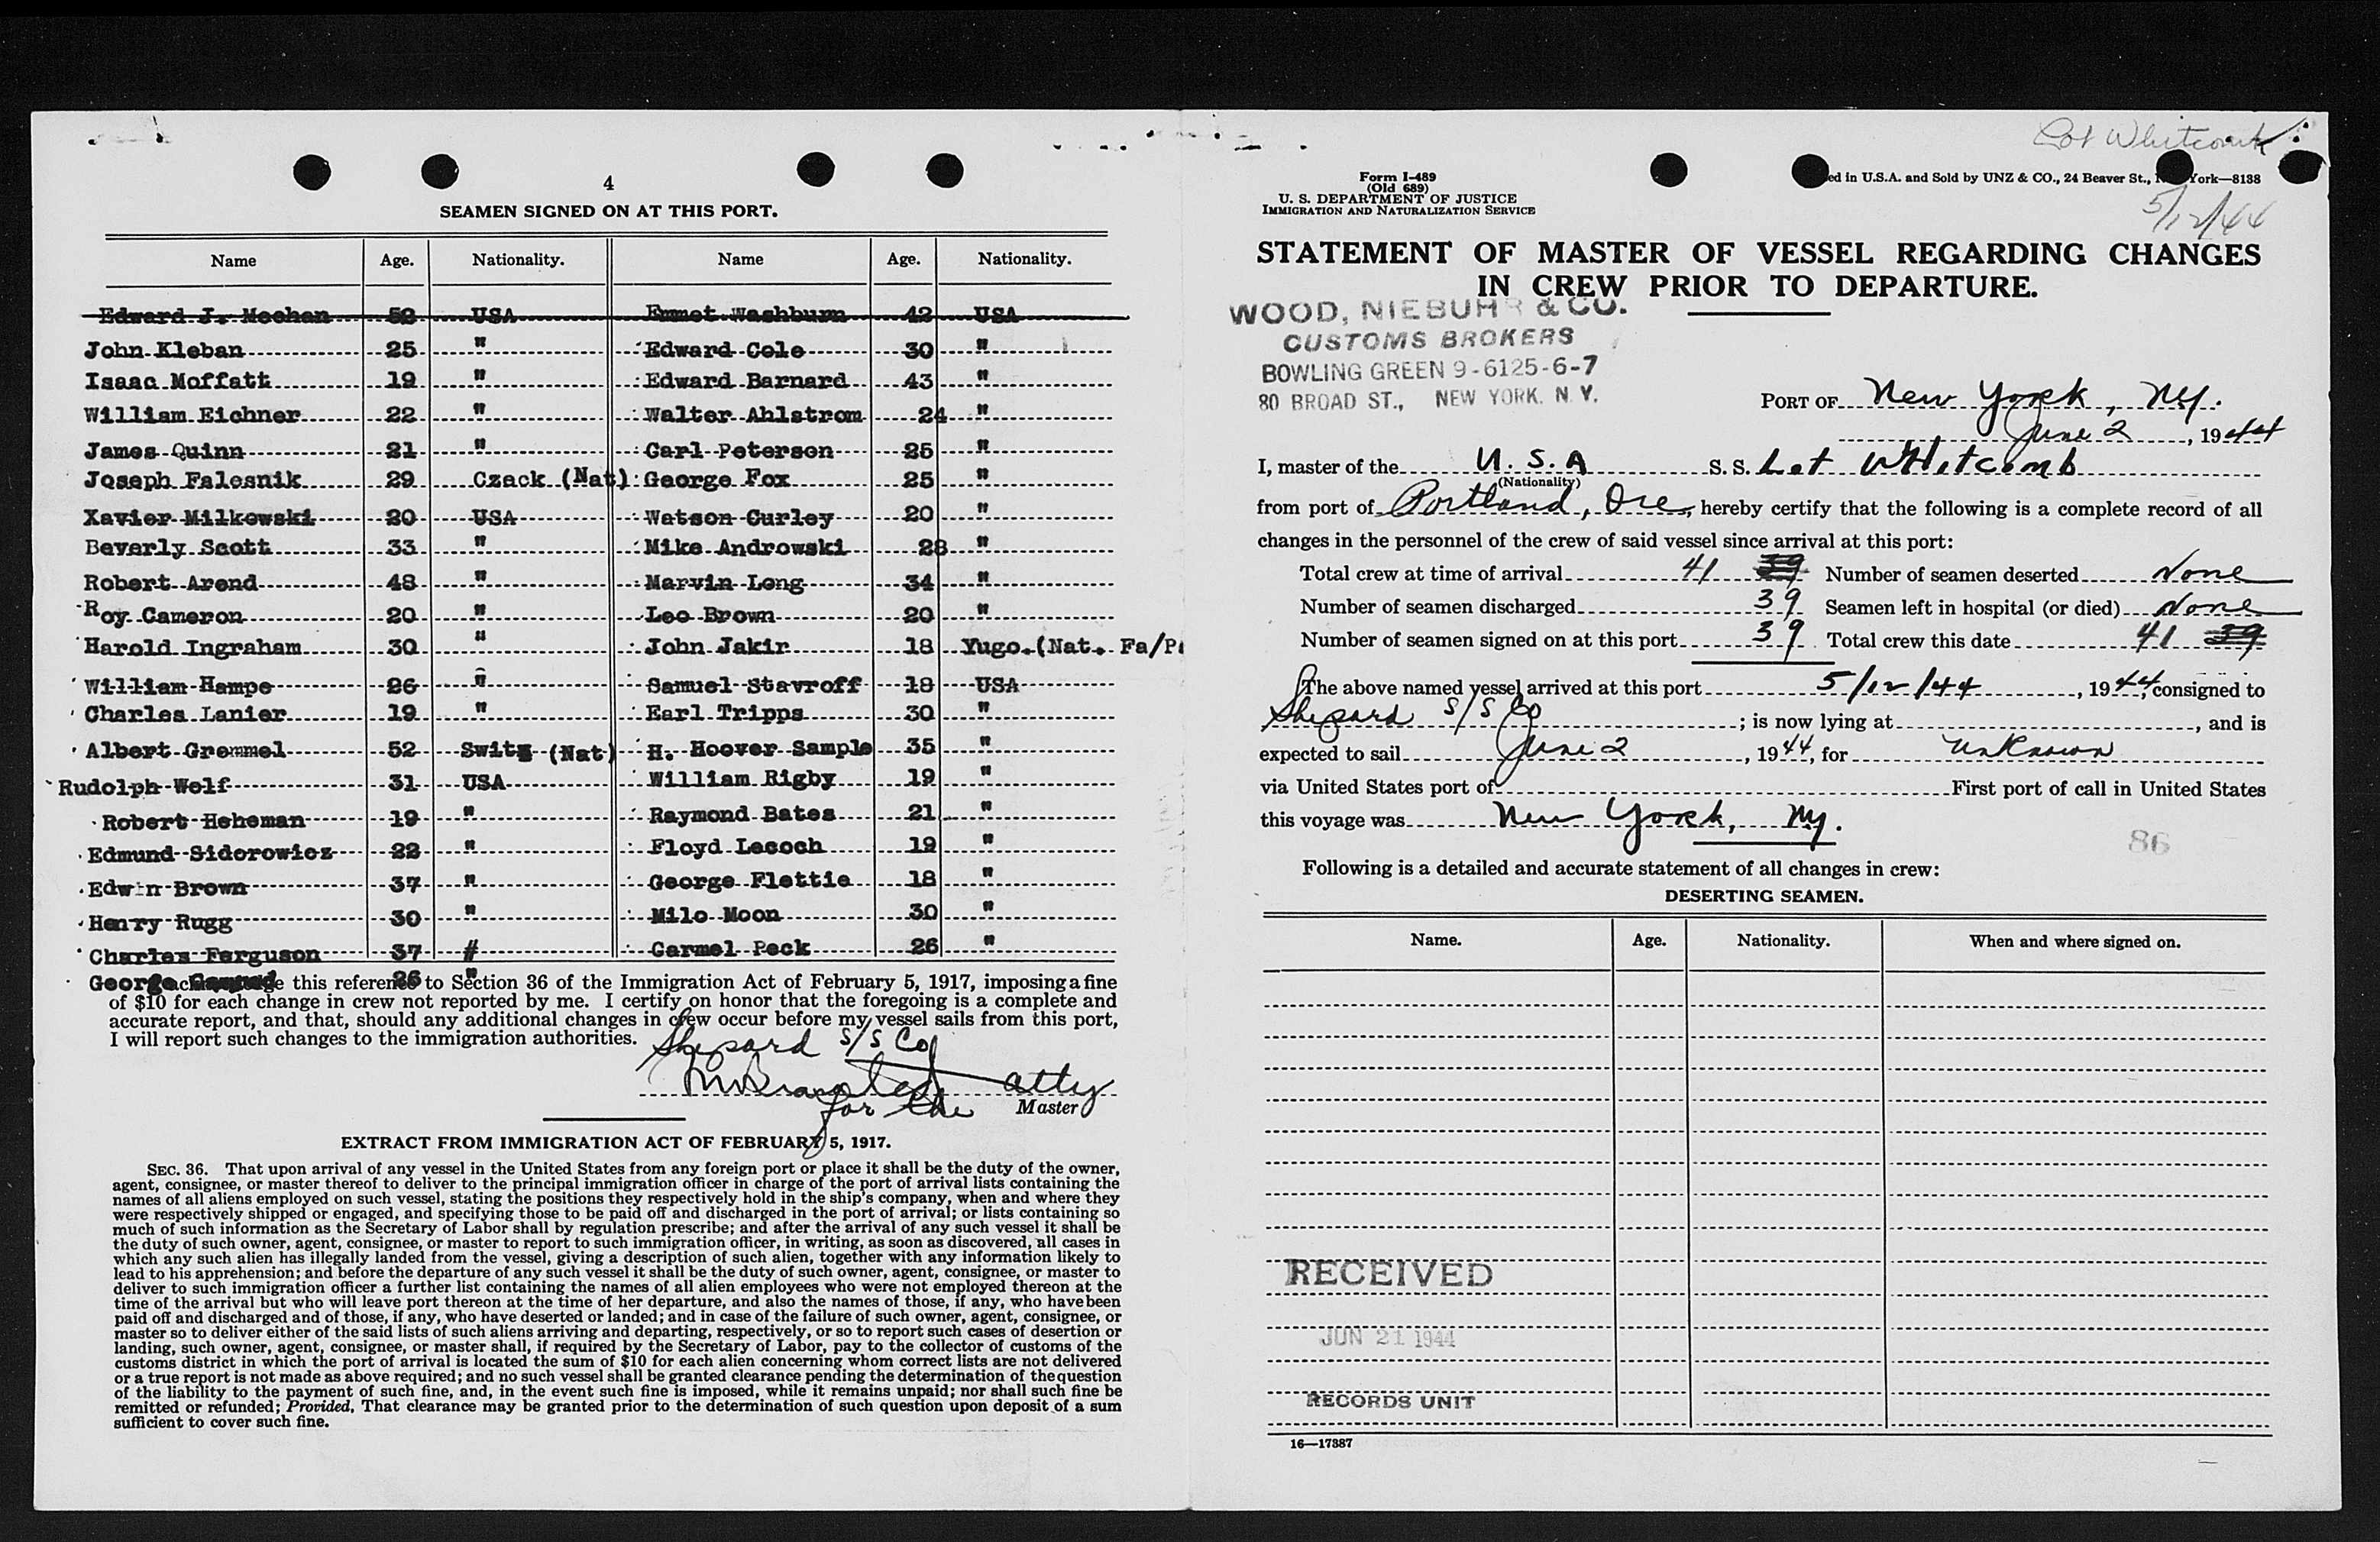 4
SEAMEN SIGNED ON AT THIS PORT.
Name Age. Nationality. Name Age. Nationality.
Edward J. Meehan 52 USA Emmet Washburn 42 USA
John Kleban 25 " Edward Cole 30 "
Isaac Moffatt 19 " Edward Barnard 43 "
William Eichner 22 " Walter Ahlstrom 24 "
James Quinn 21 " Carl Peterson 25 "
Joseph Falesnik 29 Czack (Nat) George Fox 25 "
Xavier Milkowski 20 USA Watson Curley 20 "
Beverly Scott 33 " Mike Androwski 28 "
Robert Arend 48 " Marvin Long 34 "
Roy Cameron 20 " Leo Brown 20 "
Harold Ingraham 30 " John Jakir 18 Yugo.(Nat. Fa/Pa
William Hampe 26 " Samuel Stavroff 18 USA
Charles Lanier 19 " Earl Tripps 30 "
Albert Gremmel 52 Switz (Nat) H. Hoover Sample 35 "
Rudolph Wolf 31 USA William Rigby 19 "
Robert Heheman 19 " Raymond Bates 21 "
Edmund Siderowicz 22 " Floyd Lecoch 19 "
Edwin Brown 37 " George Flettie 18 "
Henry Rugg 30 " Milo Moon 30 "
Charles Ferguson 37 # Carmel Peck 26 "
George 26 "
this reference to Section 36 of the Immigration Act of February 5, 1917, imposing a fine
of $10 for each change in crew not reported by me. I certify on honor that the foregoing is a complete and
accurate report, and that, should any additional changes in crew occur before my vessel sails from this port,
I will report such changes to the immigration authorities.
Shepard S/S Co
atty
for the Master
EXTRACT FROM IMMIGRATION ACT OF FEBRUARY 5, 1917.
SEC. 36. That upon arrival of any vessel in the United States from any foreign port or place it shall be the duty of the owner,
agent, consignee, or master thereof to deliver to the principal immigration officer in charge of the port of arrival lists containing the
names of all aliens employed on such vessel, stating the positions they respectively hold in the ship's company, when and where they
were respectively shipped or engaged, and specifying those to be paid off and discharged in the port of arrival; or lists containing so
much of such information as the Secretary of Labor shall by regulation prescribe; and after the arrival of any such vessel it shall be
the duty of such owner, agent, consignee, or master to report to such immigration officer, in writing, as soon as discovered, all cases in
which any such alien has illegally landed from the vessel, giving a description of such alien, together with any information likely to
lead to his apprehension; and before the departure of any such vessel it shall be the duty of such owner, agent, consignee, or master to
deliver to such immigration officer a further list containing the names of all alien employees who were not employed thereon at the
time of the arrival but who will leave port thereon at the time of her departure, and also the names of those, if any, who have been
paid off and discharged and of those, if any, who have deserted or landed; and in case of the failure of such owner, agent, consignee, or
master so to deliver either of the said lists of such aliens arriving and departing, respectively, or so to report such cases of desertion or
landing, such owner, agent, consignee, or master shall, if required by the Secretary of Labor, pay to the collector of customs of the
customs district in which the port of arrival is located the sum of $10 for each alien concerning whom correct lists are not delivered
or a true report is not made as above required; and no such vessel shall be granted clearance pending the determination of the question
of the liability to the payment of such fine, and, in the event such fine is imposed, while it remains unpaid; nor shall such fine be
remitted or refunded; Provided, That clearance may be granted prior to the determination of such question upon deposit of a sum
sufficient to cover such fine.
Lot Whitcomb
Form I-489
(Old 689)
U. S. DEPARTMENT OF JUSTICE
IMMIGRATION AND NATURALIZATION SERVICE
ed in U.S.A. and Sold by UNZ & CO., 24 Beaver St., N York—8138
5/12/44
STATEMENT OF MASTER OF VESSEL REGARDING CHANGES
IN CREW PRIOR TO DEPARTURE.
WOOD, NIEBUHR & CO.
CUSTOMS BROKERS
BOWLING GREEN 9-6125-6-7
80 BROAD ST., NEW YORK. N. Y.
PORT OF New York, NY.
June 2, 1944
I, master of the U.S.A S. S. Lot Whitcomb
(Nationality)
from port of Portland, Ore, hereby certify that the following is a complete record of all
changes in the personnel of the crew of said vessel since arrival at this port:
Total crew at time of arrival 41 39 Number of seamen deserted None
Number of seamen discharged 39 Seamen left in hospital (or died) None
Number of seamen signed on at this port 39 Total crew this date 41 39
The above named vessel arrived at this port 5/12/44, 1944, consigned to
Shepard S/S Co; is now lying at , and is
expected to sail June 2, 1944, for unknown
via United States port of First port of call in United States
this voyage was New York, Ny.
86
Following is a detailed and accurate statement of all changes in crew:
DESERTING SEAMEN.
Name. Age. Nationality. When and where signed on.
RECEIVED
JUN 21 1944
RECORDS UNIT
16—17387